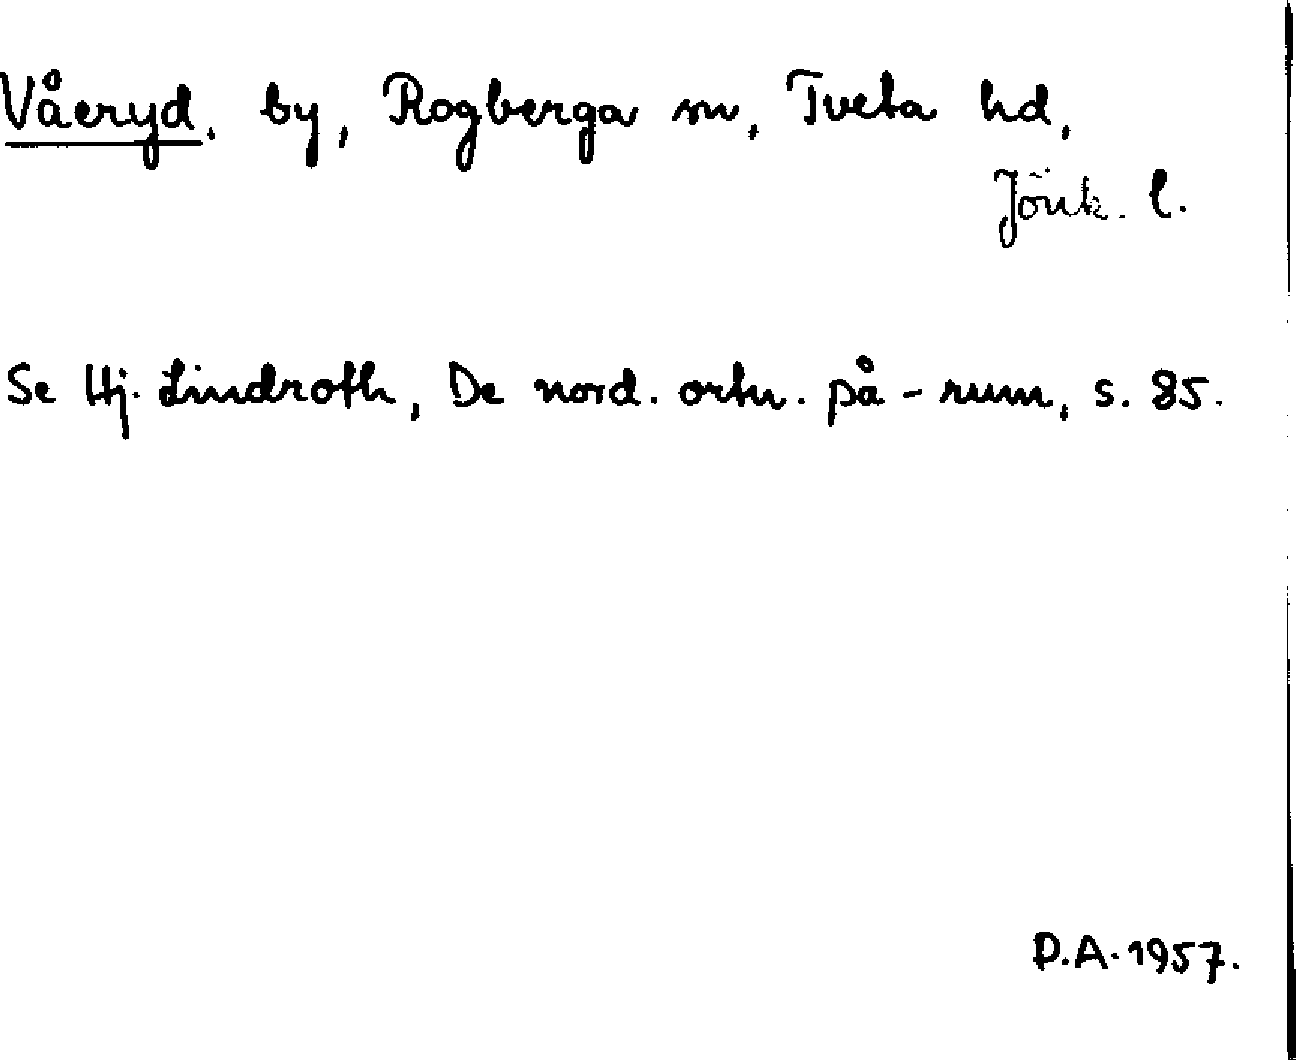 Våeryd, by, Rogberga sn, Tveta hd,
Jönk. l.
Se Hj. Lindroth, De nord. ortn. på -rum, s. 85.
D.A. 1957.